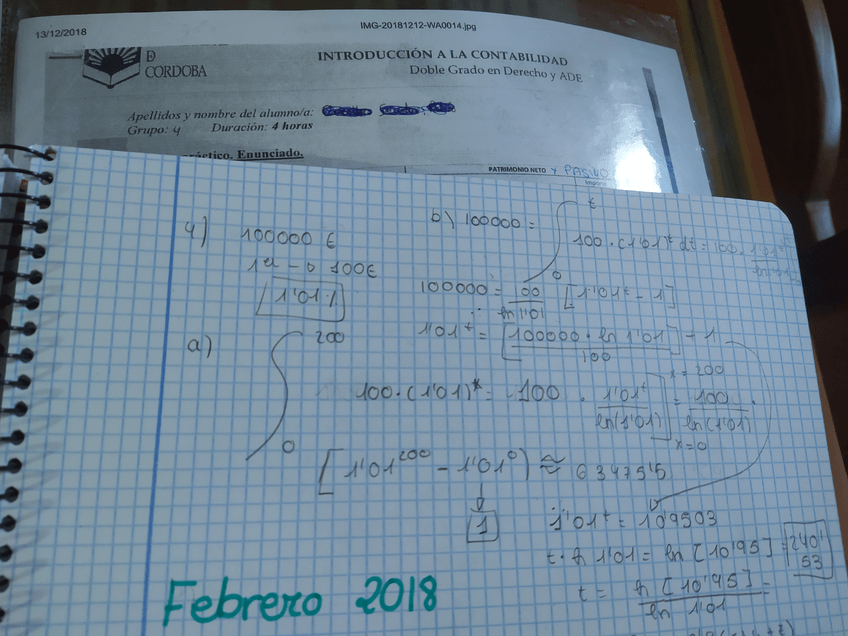 13/12/2018 IMG-20181212-WA0014.jpg
DE
CORDOBA
INTRODUCCIÓN A LA CONTABILIDAD
Doble Grado en Derecho y ADE
Apellidos y nombre del alumno/a:
Grupo: 4 Duración: 4 horas
práctico. Enunciado.
PATRIMONIO NETO Y PASIVO
4) 100000 €
100€
1'01
a)
∫ 200
0
100·(1'01)ᵗ = 100 · 1'01ᵗ / ln(1'01) ] x=200 x=0 = 100 / ln(1'01) ·
[1'01²⁰⁰ - 1'01⁰) ≈ 63475'5
1
b) 100000 = ∫ t 0 100·(1'01)ᵗ dt = 100 ·
100000 = 100 / ln 1'01 [1'01ᵗ - 1]
1'01ᵗ = [100000 · ln 1'01 / 100] - 1
1'01ᵗ = 10'9503
t · ln 1'01 = ln [10'95] = 240'53
t = ln [10'95] / ln 1'01 =
Febrero 2018